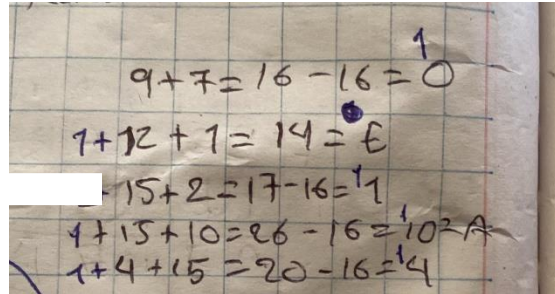 1
9+7=16-16=0
1+12+1=14=E
15+2=17-16=¹1
1+15+10=26-16=¹10=A
1+4+15=20-16=¹4